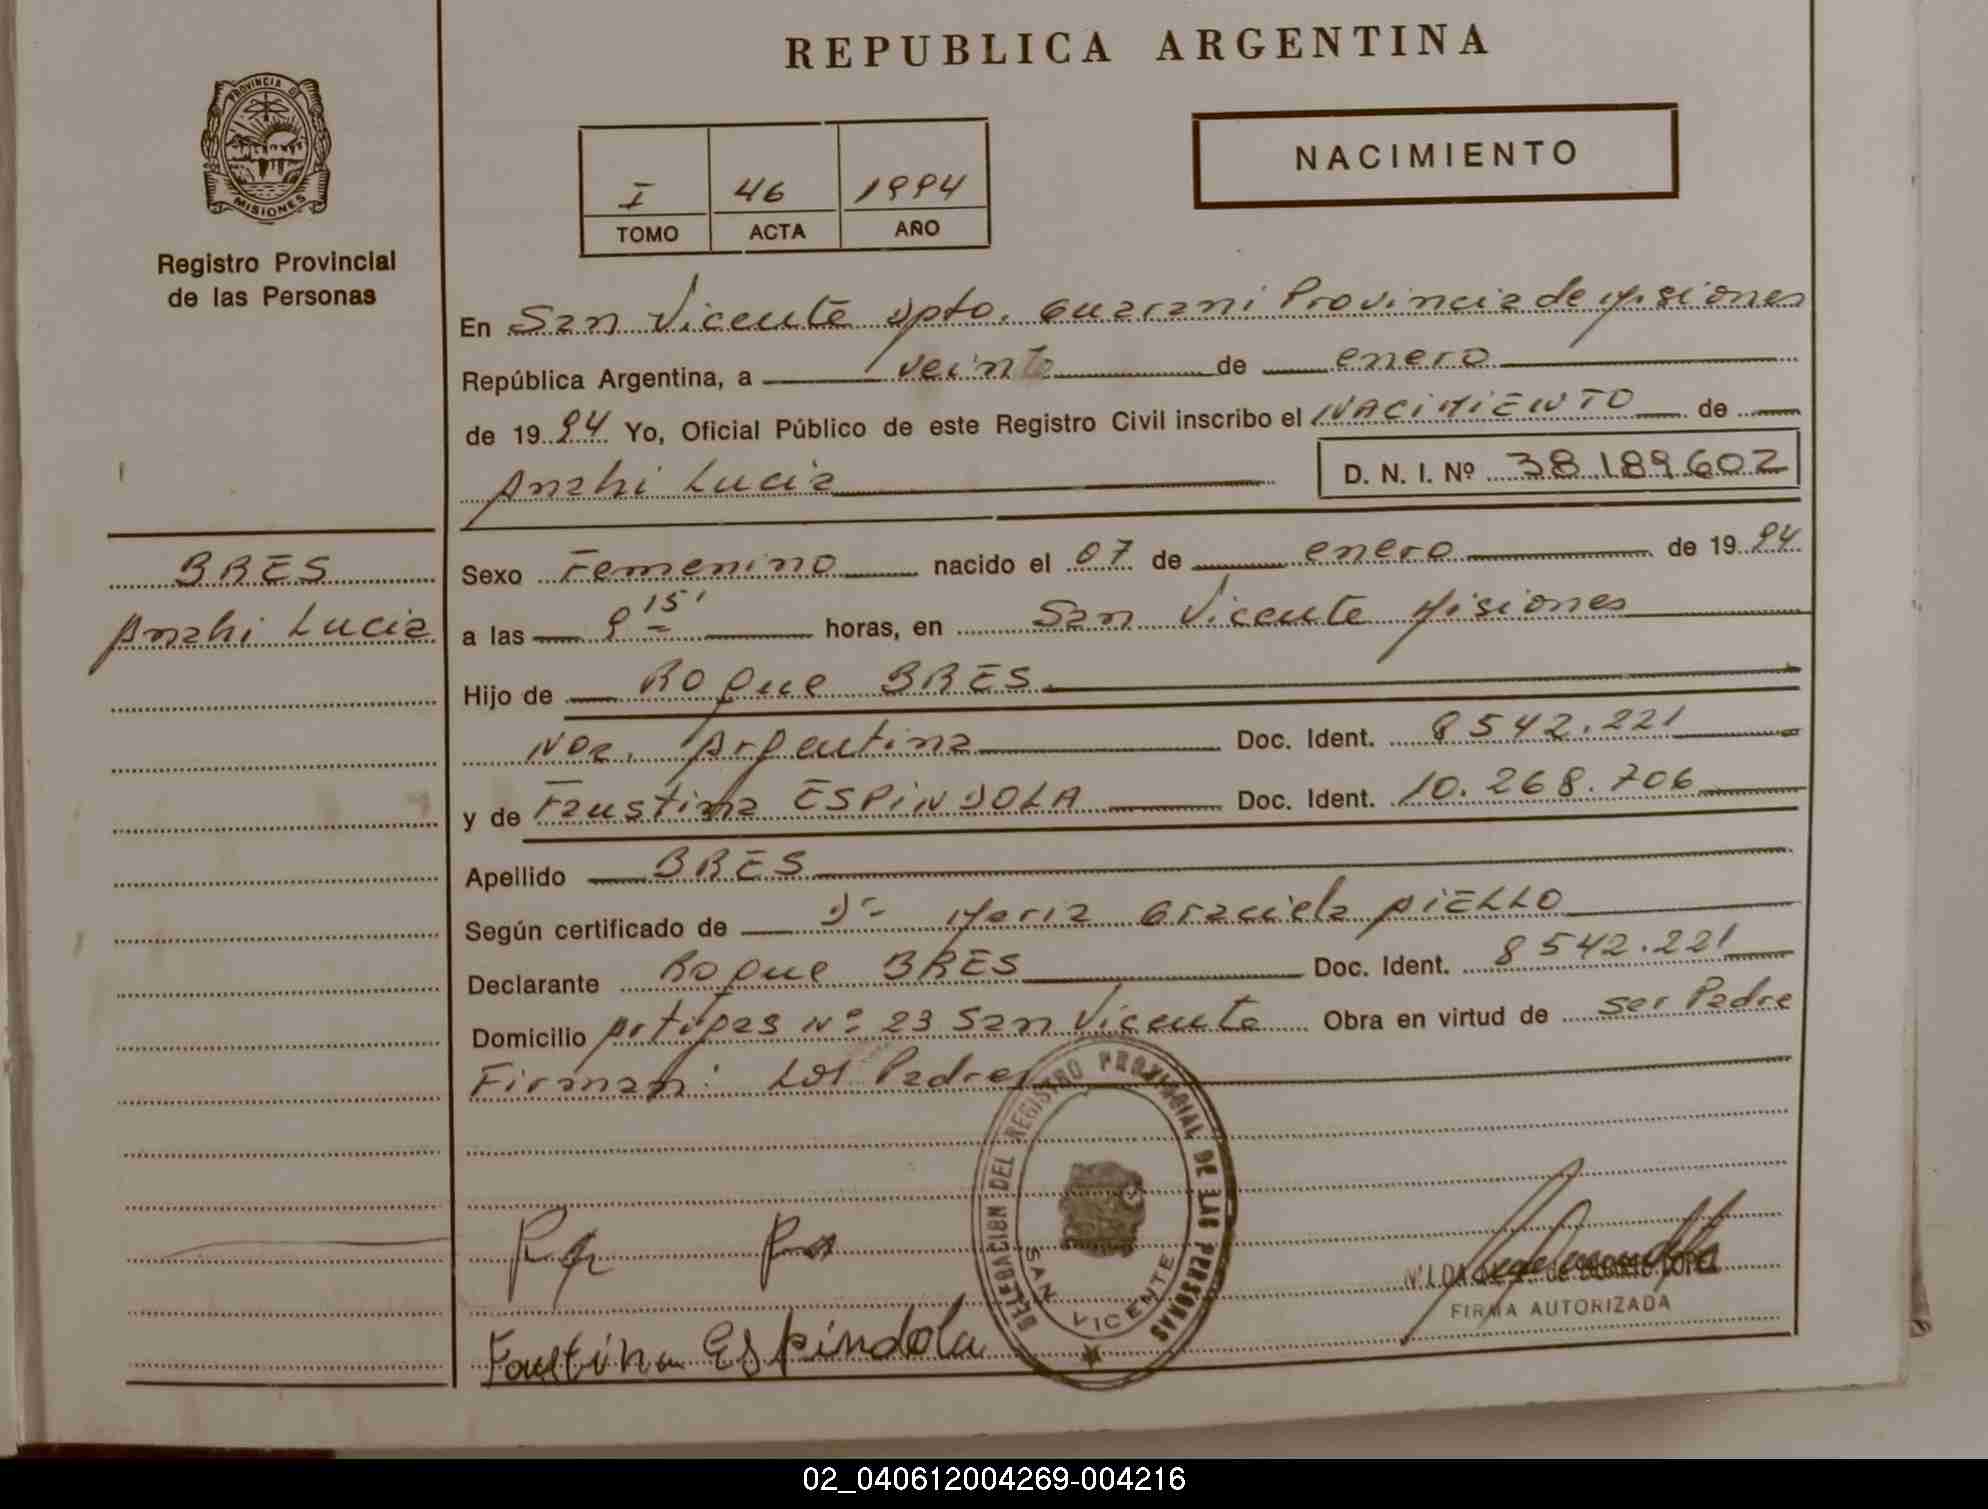 REPUBLICA ARGENTINA
PROVINCIA DE
MISIONES
Registro Provincial
de las Personas
I 46 1994
TOMO ACTA AÑO
NACIMIENTO
En San Vicente Dpto. Guarani Provincia de Misiones
República Argentina, a veinte de enero
de 1994 Yo, Oficial Público de este Registro Civil inscribo el NACIMIENTO de
Anahi Lucia D. N. I. Nº 38.189.602
BRES
Anahi Lucia
Sexo Femenino nacido el 07 de enero de 1994
a las 9 15' horas, en San Vicente Misiones
Hijo de Roque BRES
Nac. Argentina Doc. Ident. 8542.221
y de Faustina ESPINDOLA Doc. Ident. 10.268.706
Apellido BRES
Según certificado de Dra Maria Graciela AiELLO
Declarante Roque BRES Doc. Ident. 8542.221
Domicilio Artigas Nº 23 San Vicente Obra en virtud de ser Padre
Firman: Los Padres
DELEGACION DEL REGISTRO PROVINCIAL DE LAS PERSONAS
SAN VICENTE
Faustina Espindola
FIRMA AUTORIZADA
02_040612004269-004216